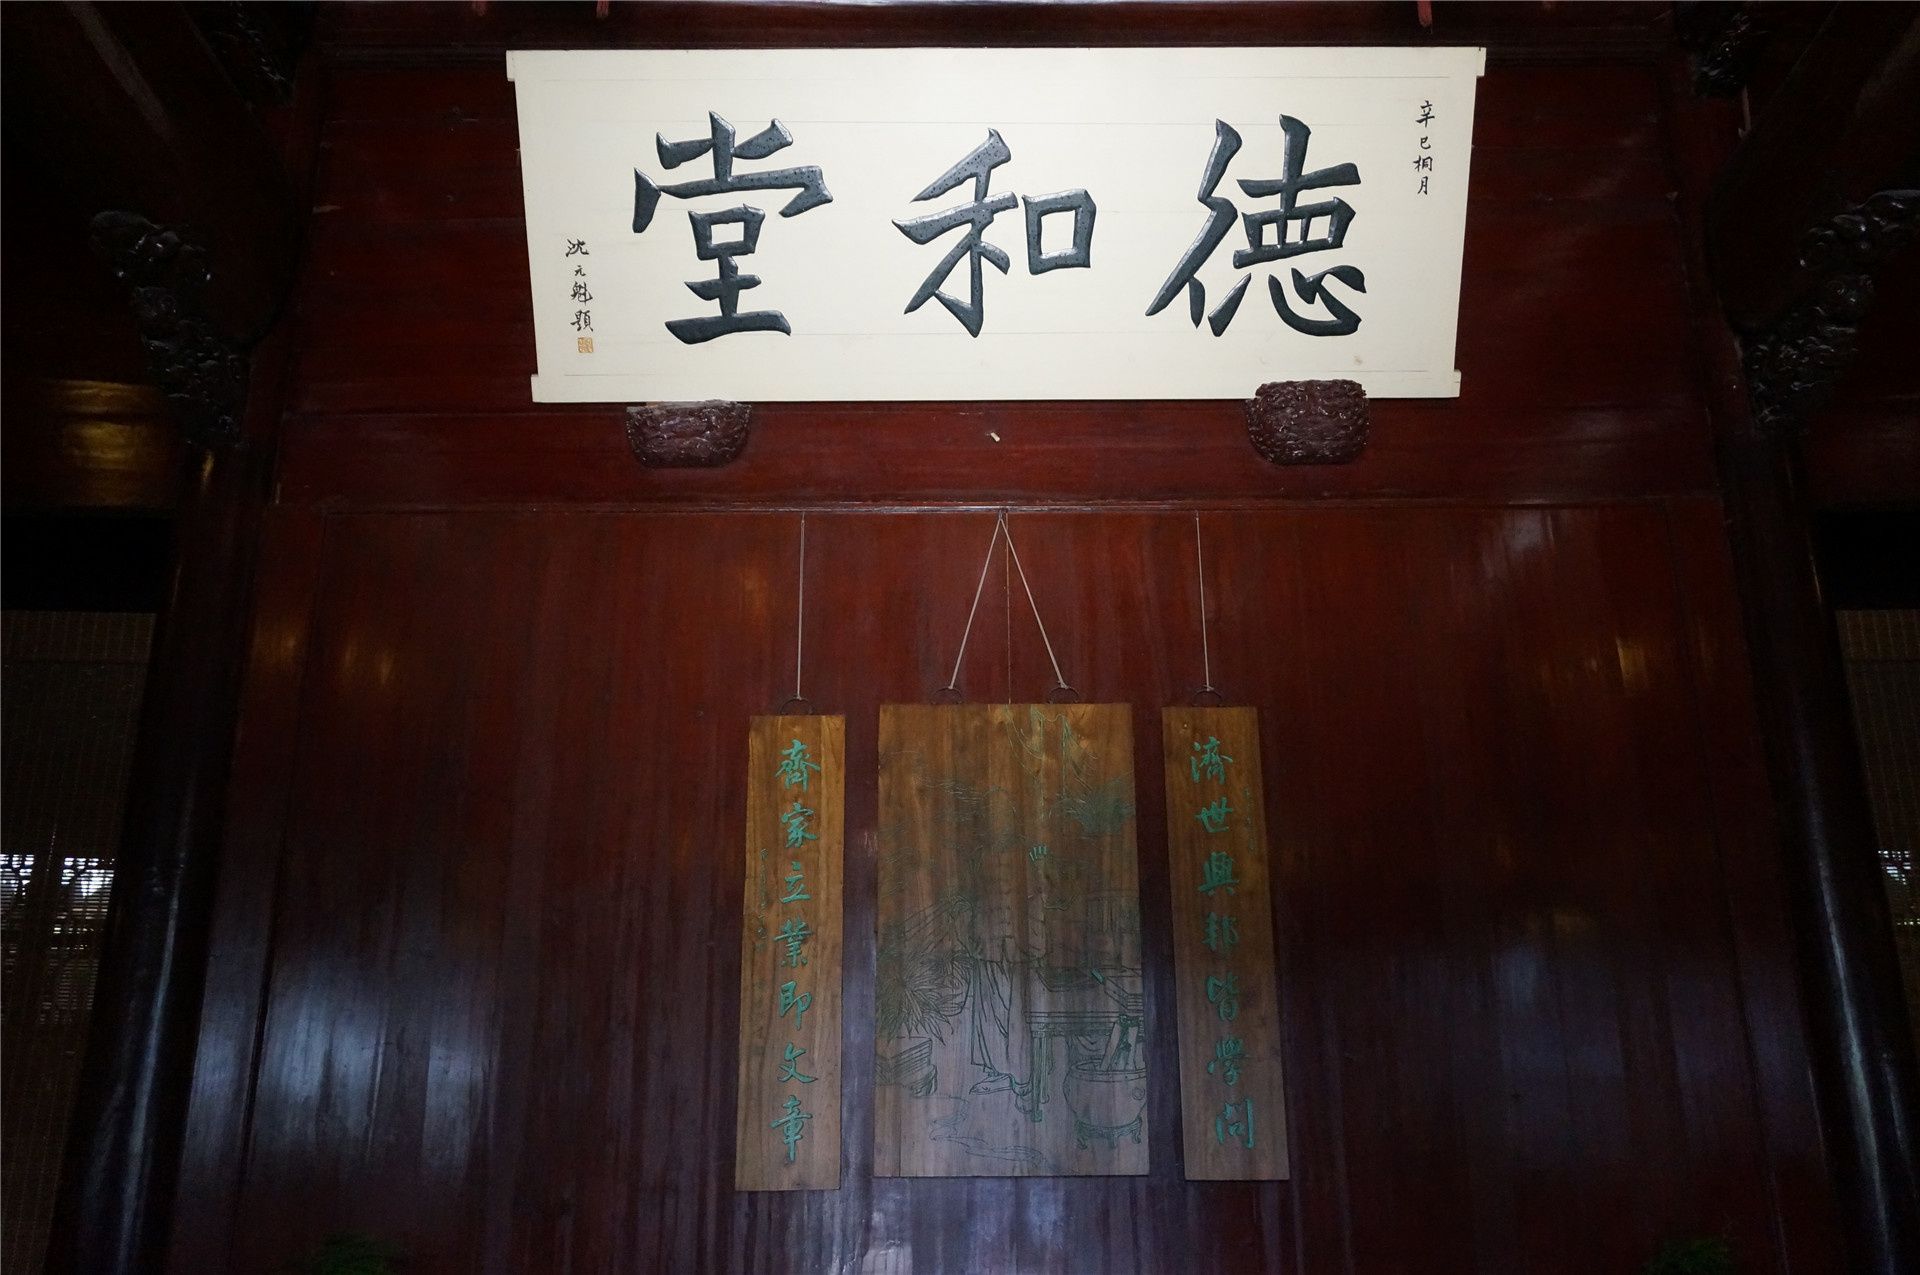 辛巳桐月
德和堂
沈元魁題
濟世興邦皆學問
齊家立業即文章